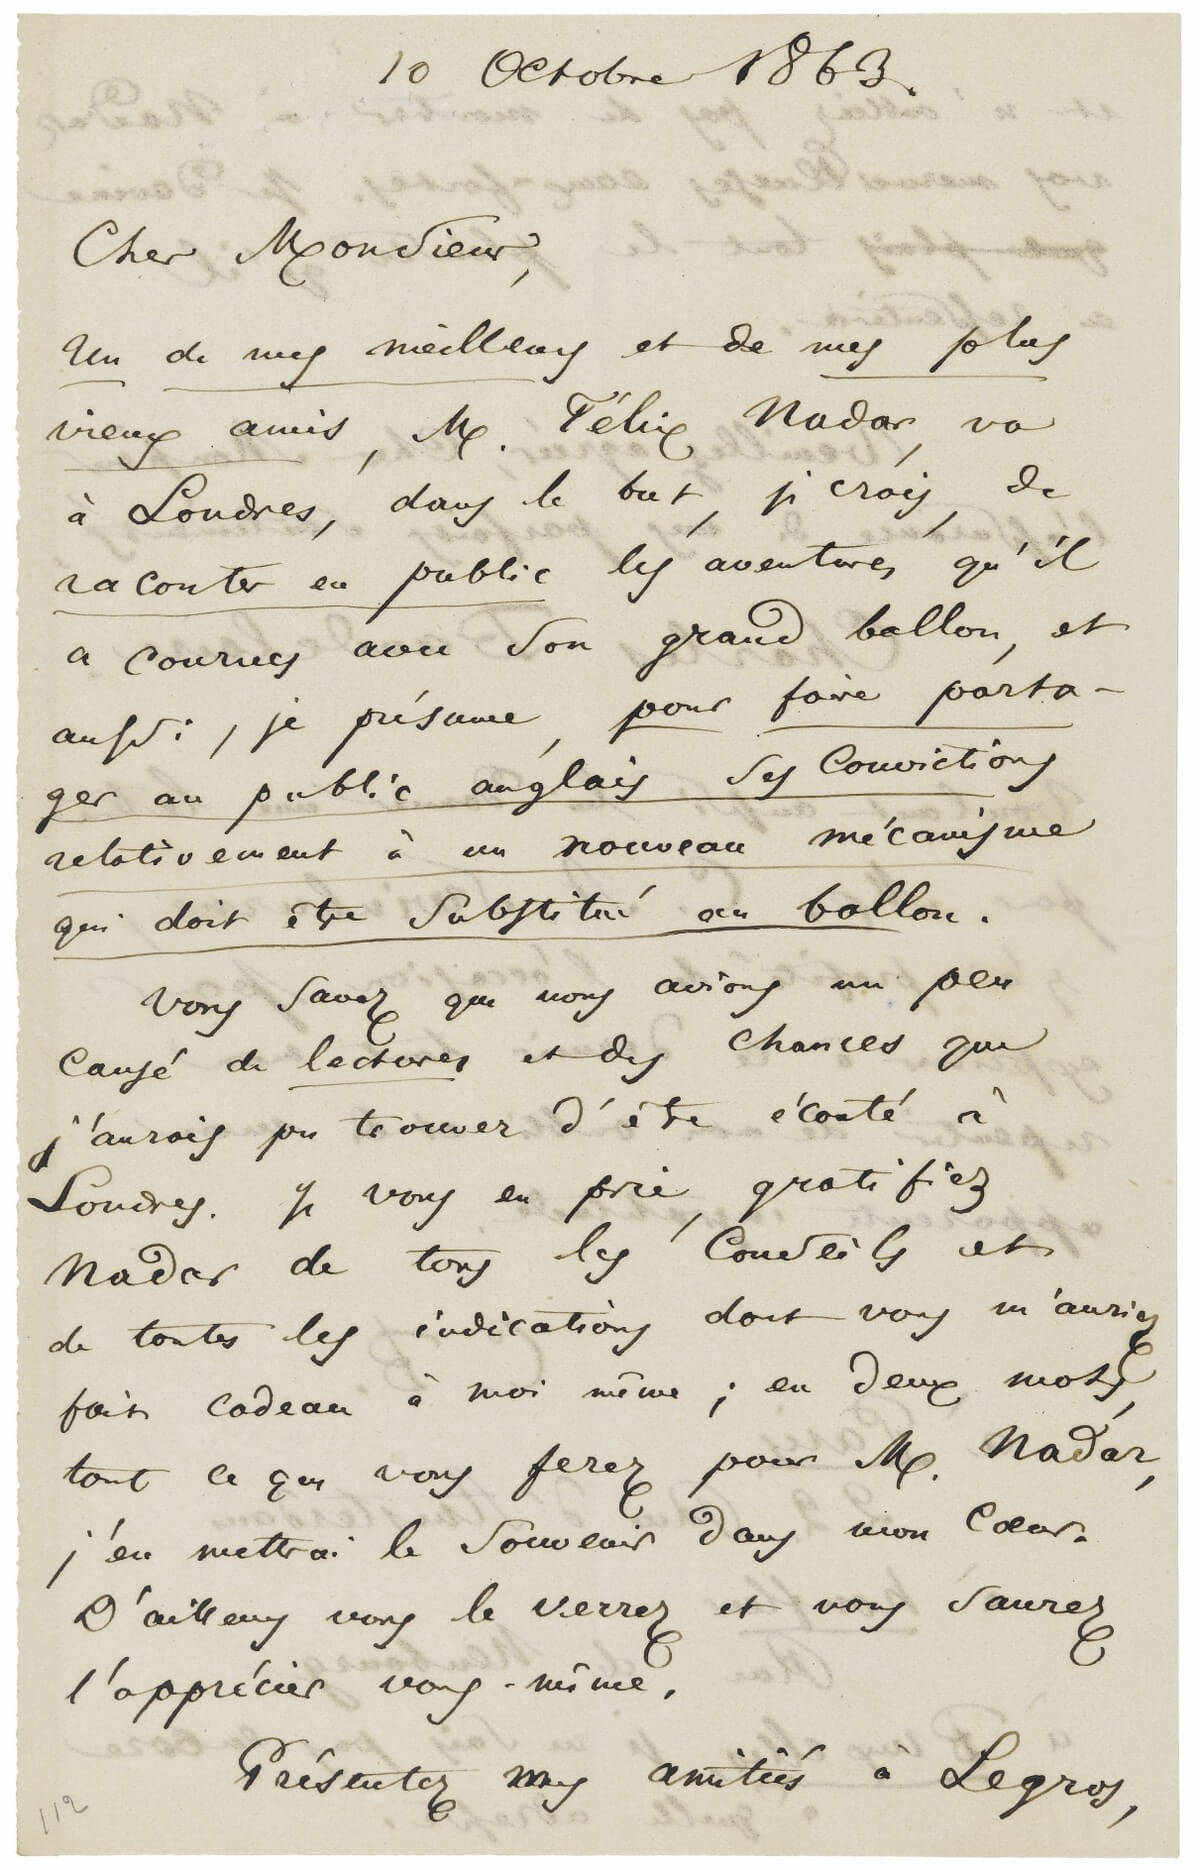 10 Octobre 1863.
Cher Monsieur,
Un de mes meilleurs et de mes plus
vieux amis, M. Félix Nadar, va
à Londres, dans le but, je crois, de
raconter en public les aventures qu'il
a courues avec son grand ballon, et
aussi, je présume, pour faire parta-
ger au public anglais ses convictions
relativement à un nouveau mécanisme
qui doit être substitué au ballon.
Vous savez que nous avions un peu
causé de lectures et des chances que
j'aurais pu trouver d'être écouté à
Londres. Je vous en prie, gratifiez
Nadar de tous les conseils et
de toutes les indications dont vous m'auriez
fait cadeau à moi même ; en deux mots,
tout ce que vous ferez pour M. Nadar,
j'en mettrai le souvenir dans mon cœur.
D'ailleurs vous le verrez et vous saurez
l'apprécier vous-même.
Présentez mes amitiés à Legros,
112